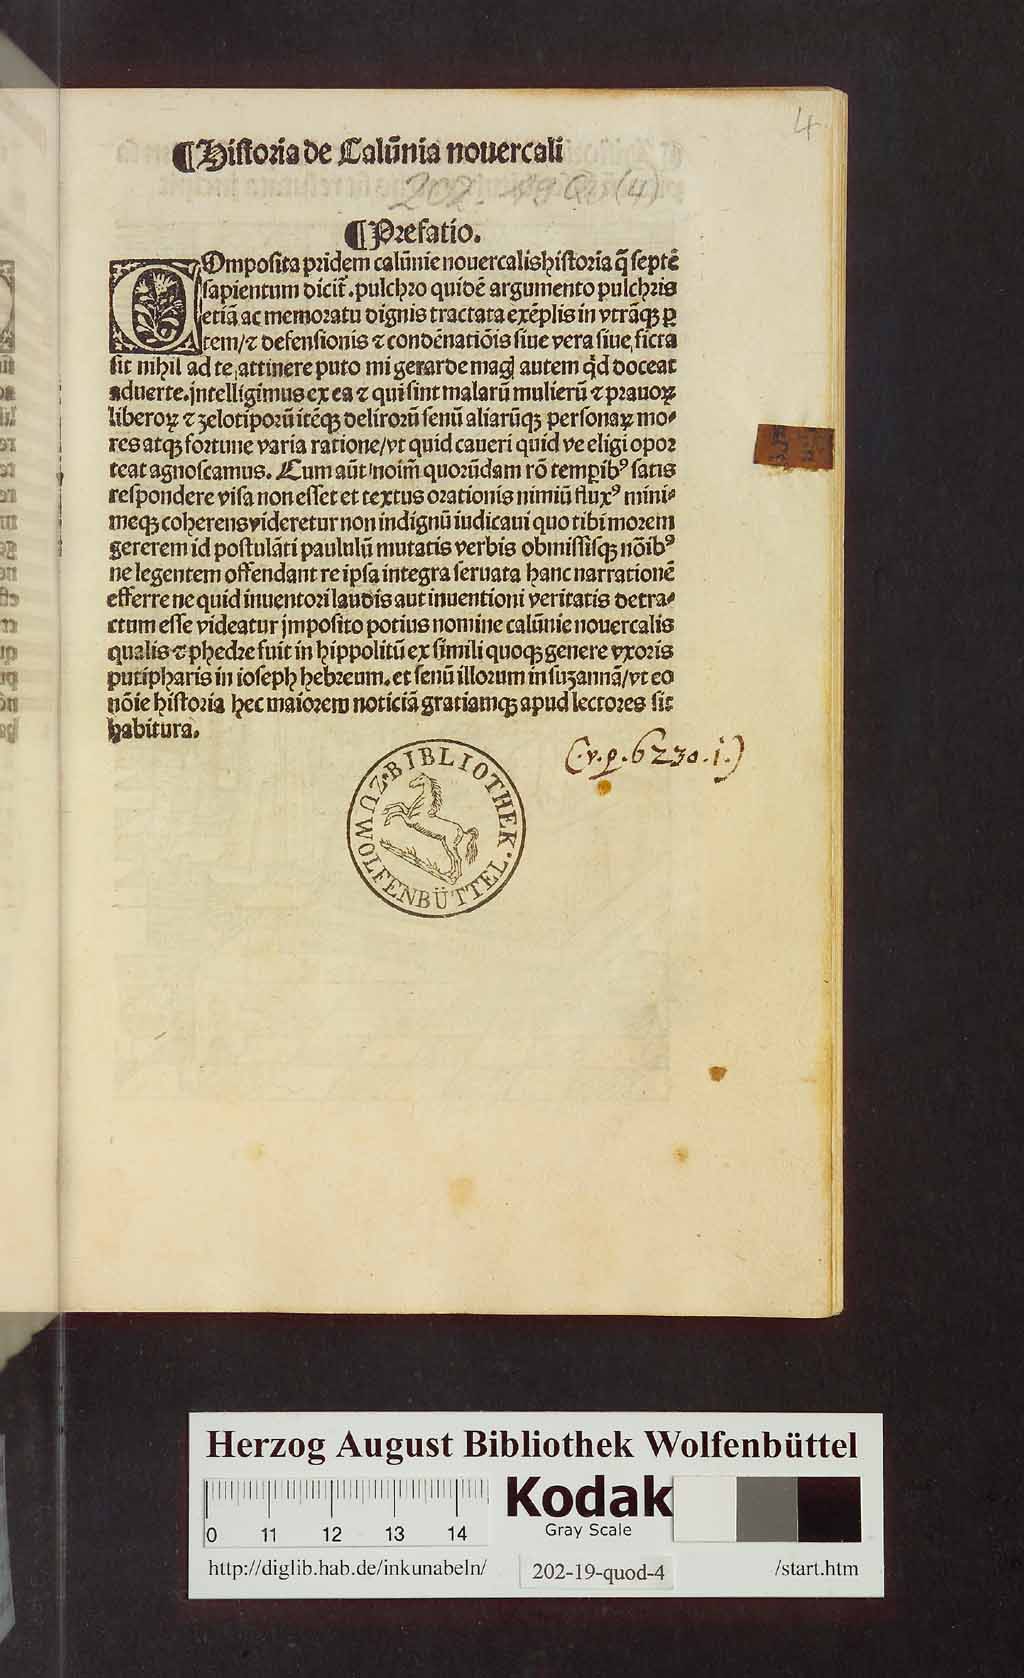 4
¶Historia de Calũnia nouercali
202. 19 Qu (4)
¶Prefatio.
COmposita pridem calũnie nouercalis historia q̃ septẽ
sapientum dicit᷑. pulchro quidẽ argumento pulchris
etiã ac memoratu dignis tractata exẽplis in vtrãqꝫ ꝑ
tem/⁊ defensionis ⁊ condẽnatiõis siue vera siue ficta
sit nihil ad te attinere puto mi gerarde mag̃ autem qͥd doceat
aduerte. jntelligimus ex ea ⁊ qui sint malarũ mulierũ ⁊ prauoꝝ
liberoꝝ ⁊ zelotiporũ itẽqꝫ delirorũ senũ aliarũqꝫ personaꝝ mo⸗
res atqꝫ fortune varia ratione/vt quid caueri quid ve eligi opor
teat agnoscamus. Cum aũt noim̃ quorũdam rõ tempib⁹ satis
respondere visa non esset et textus orationis nimiũ flux⁹ mini⸗
meqꝫ coherens videretur non indignũ iudicaui quo tibi morem
gererem id postulãti paululũ mutatis verbis obmissisqꝫ nõib⁹
ne legentem offendant re ipsa integra seruata hanc narrationẽ
efferre ne quid inuentori laudis aut inuentioni veritatis detra⸗
ctum esse videatur jmposito potius nomine calũnie nouercalis
qualis ⁊ phedre fuit in hippolitũ ex simili quoqꝫ genere vxoris
putipharis in ioseph hebreum. et senũ illorum in suzannã/vt eo
nõie historia hec maiorem noticiã gratiamqꝫ apud lectores sit
habitura.
(.v.p.6230.j.)
BIBLIOTHEK·
ZU WOLFENBÜTTEL·
Herzog August Bibliothek Wolfenbüttel
0 11 12 13 14
Kodak
Gray Scale
http://diglib.hab.de/inkunabeln/
202-19-quod-4
/start.htm